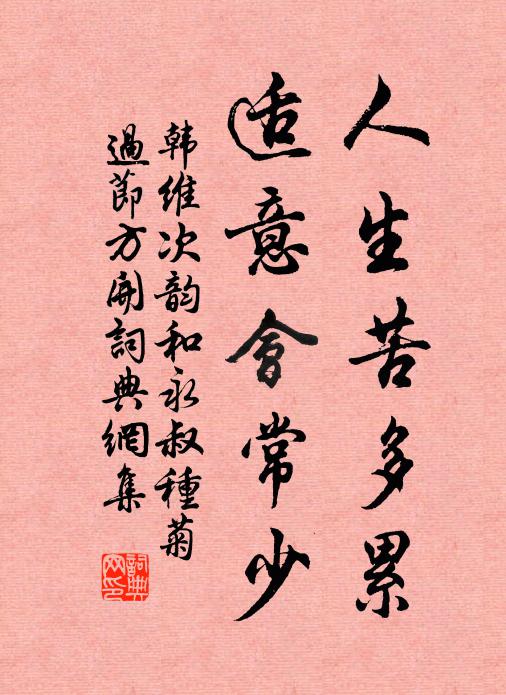 人生苦多累
适意會常少
韩維次韵和永叔種菊
過節方開詞典網集
詞典網印